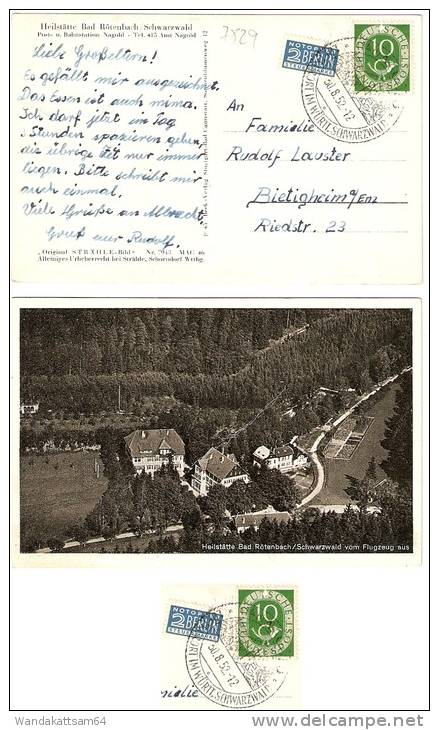 Heilstätte Bad Rötenbach/Schwarzwald
Post- u. Bahnstation Nagold - Tel. 415 Amt Nagold
7829
Liebe Großeltern!
Es gefällt mir ausgezeichnet.
Das Essen ist auch prima.
Ich darf jetzt im Tag
Stunden spazieren gehen,
die übrige Zeit nur immer
liegen. Bitte schreibt mir
auch einmal.
Viele Grüße an Albrecht.
Gruß euer Rudolf.
"Original STRÄHLE-Bild" Nr. MAC 46
Alleiniges Urheberrecht bei Strähle, Schorndorf Wttbg.
NOTOPFER
2 BERLIN
STEUERMARKE
DEUTSCHE BUNDESPOST
10
30.8.52-12
KURORT IM WÜRTT. SCHWARZWALD
An
Familie
Rudolf Lauster
Bietigheim a/Enz
Riedstr. 23
Heilstätte Bad Rötenbach/Schwarzwald vom Flugzeug aus
NOTOPFER
2 BERLIN
STEUERMARKE
10
DEUTSCHE BUNDESPOST
30.8.52-12
ORT IM WÜRTT. SCHWARZWALD
milie
Wandakattsam64